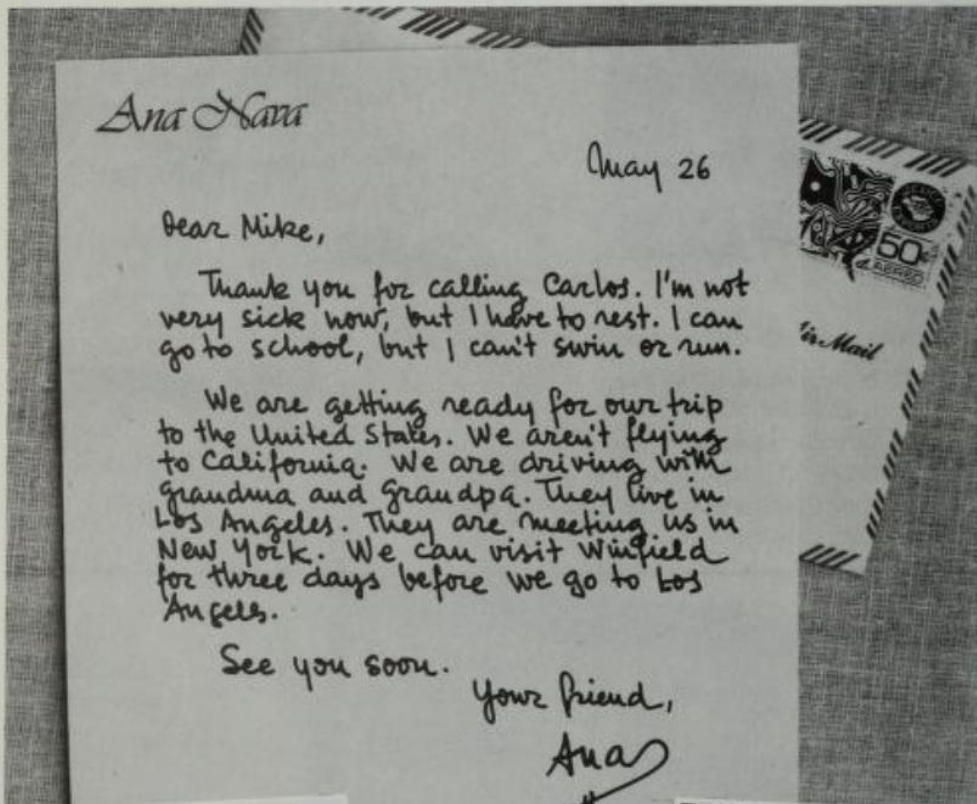 Ana Nava
May 26
Dear Mike,
Thank you for calling Carlos. I'm not
very sick now, but I have to rest. I can
go to school, but I can't swim or run.
We are getting ready for our trip
to the United States. We aren't flying
to California. We are driving with
Grandma and Grandpa. They live in
Los Angeles. They are meeting us in
New York. We can visit Winfield
for three days before we go to Los
Angels.
See you soon.
Your friend,
Ana
50c
AEREO
Air Mail